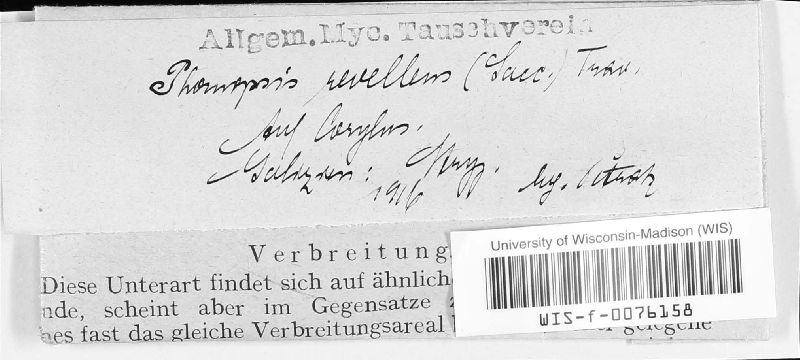 Allgem. Myc. Tauschverein
Phomopsis revellens (Sacc.) Trav.
Auf Corylus.
Galizien:
1916
leg. Petrak
Verbreitung
Diese Unterart findet sich auf ähnlich
nde, scheint aber im Gegensatze
hes fast das gleiche Verbreitungsareal
gelegene
University of Wisconsin-Madison (WIS)
WIS-f-0076158